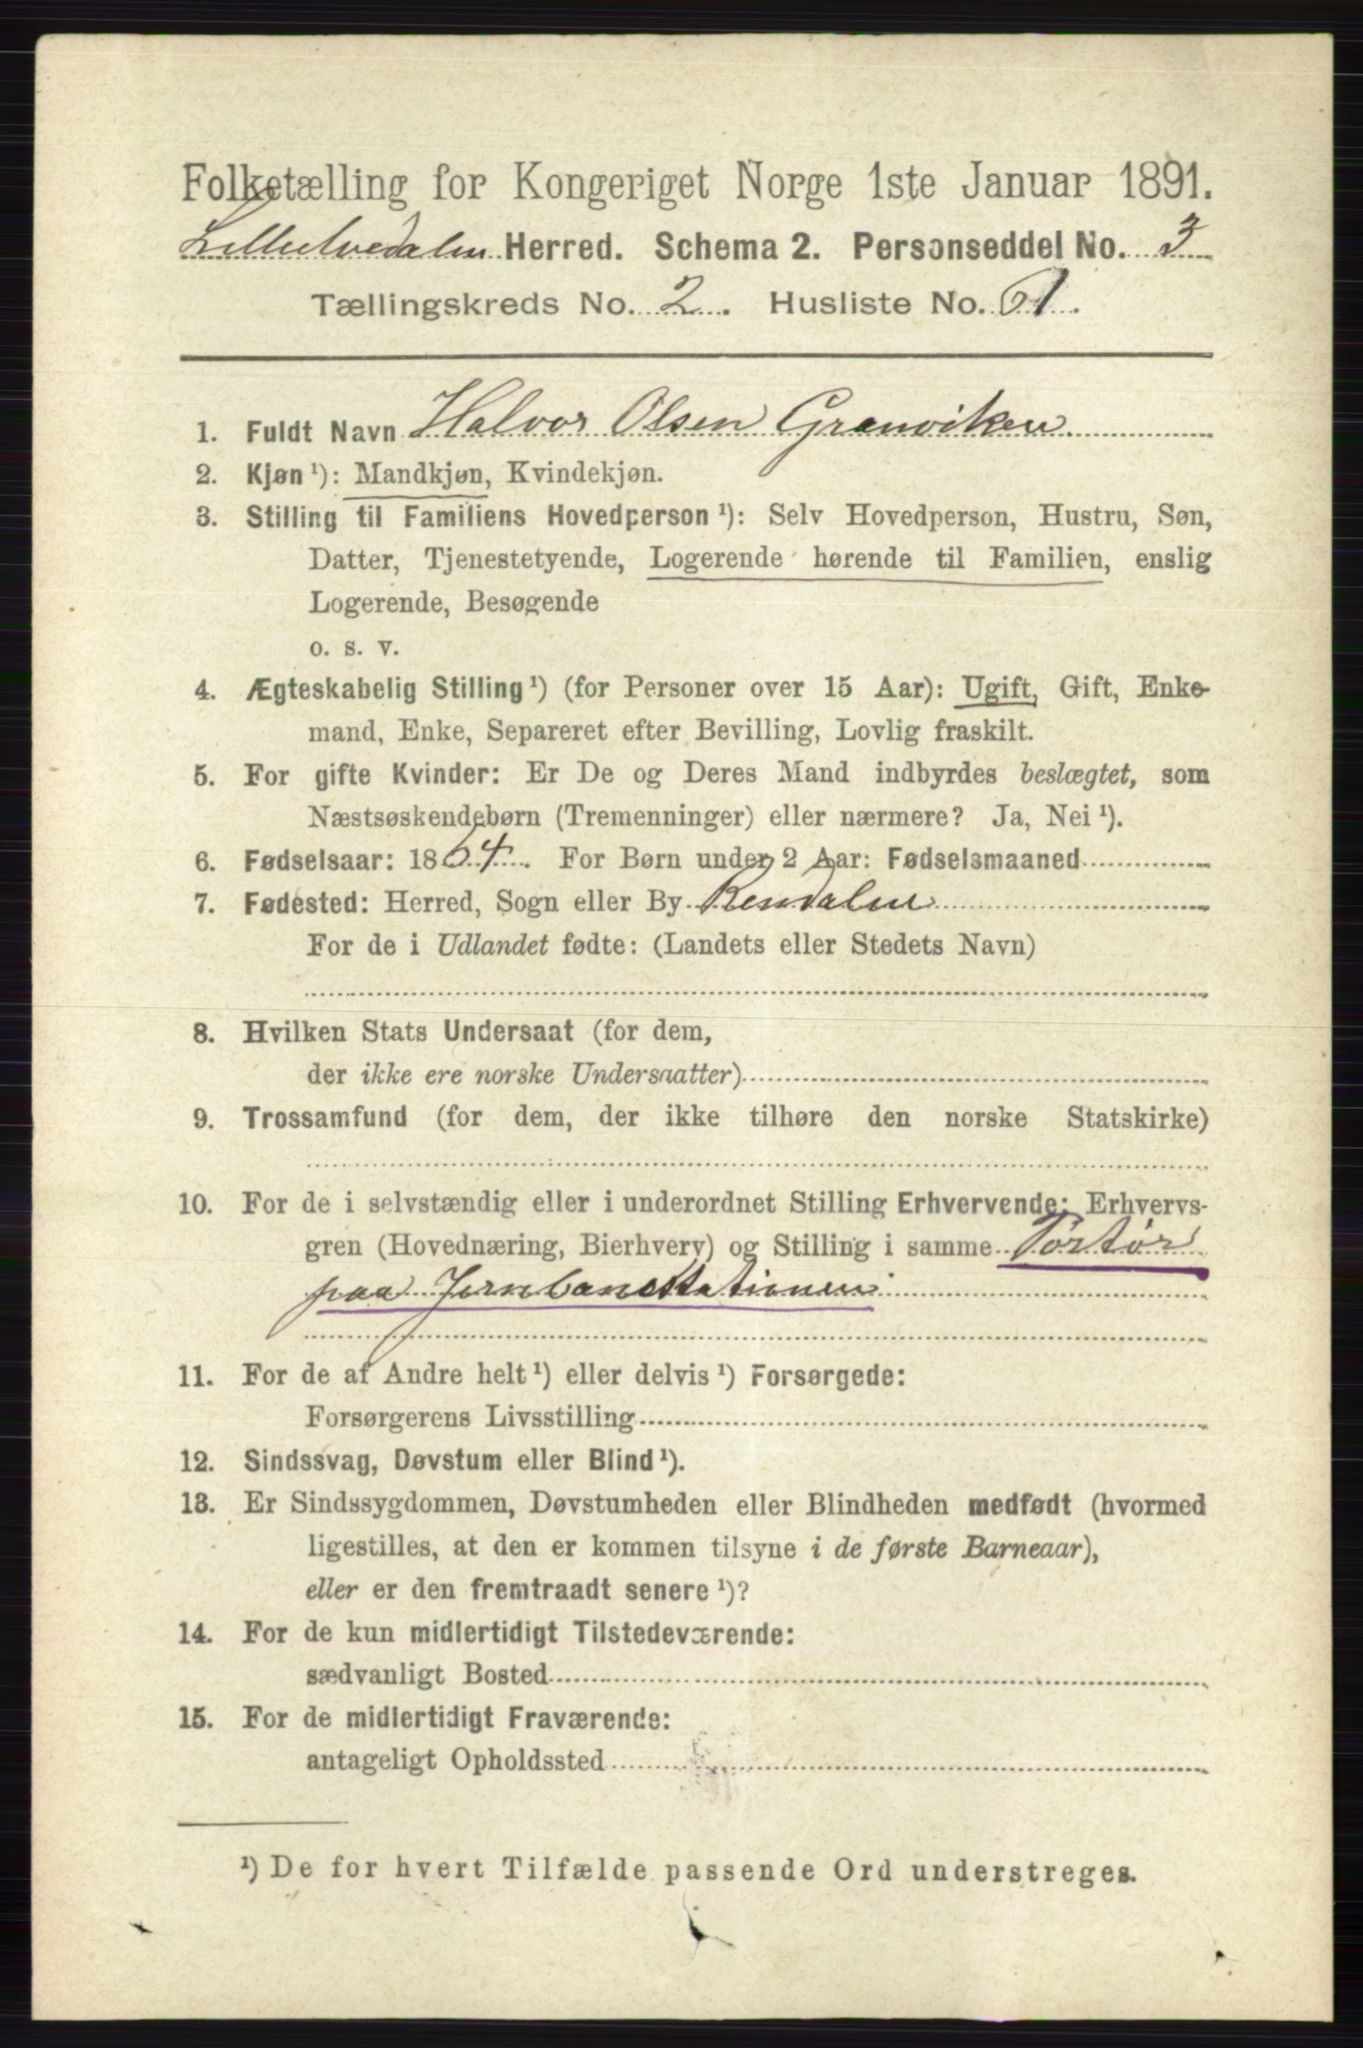 Folketælling for Kongeriget Norge 1ste Januar 1891.
Lilleelvedalen Herred. Schema 2. Personseddel No. 3
Tællingskreds No. 2. Husliste No. 61.
1. Fuldt Navn Halvor Olsen Granviken
2. Kjøn ¹): Mandkjøn, Kvindekjøn.
3. Stilling til Familiens Hovedperson ¹): Selv Hovedperson, Hustru, Søn,
Datter, Tjenestetyende, Logerende hørende til Familien, enslig
Logerende, Besøgende
o. s. v.
4. Ægteskabelig Stilling ¹) (for Personer over 15 Aar): Ugift, Gift, Enke-
mand, Enke, Separeret efter Bevilling, Lovlig fraskilt.
5. For gifte Kvinder: Er De og Deres Mand indbyrdes beslægtet, som
Næstsøskendebørn (Tremenninger) eller nærmere? Ja, Nei ¹).
6. Fødselsaar: 1864. For Børn under 2 Aar: Fødselsmaaned
7. Fødested: Herred, Sogn eller By Rendalen
For de i Udlandet fødte: (Landets eller Stedets Navn)
8. Hvilken Stats Undersaat (for dem,
der ikke ere norske Undersaatter)
9. Trossamfund (for dem, der ikke tilhøre den norske Statskirke)
10. For de i selvstændig eller i underordnet Stilling Erhvervende: Erhvervs-
gren (Hovednæring, Bierhverv) og Stilling i samme Portør
paa Jernbanestationen
11. For de af Andre helt ¹) eller delvis ¹) Forsørgede:
Forsørgerens Livsstilling
12. Sindssvag, Døvstum eller Blind ¹).
13. Er Sindssygdommen, Døvstumheden eller Blindheden medfødt (hvormed
ligestilles, at den er kommen tilsyne i de første Barneaar),
eller er den fremtraadt senere ¹)?
14. For de kun midlertidigt Tilstedeværende:
sædvanligt Bosted
15. For de midlertidigt Fraværende:
antageligt Opholdssted
¹) De for hvert Tilfælde passende Ord understreges.